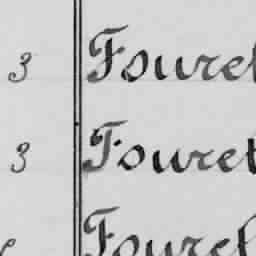 3 Fouret
3 Fouret
Fouret